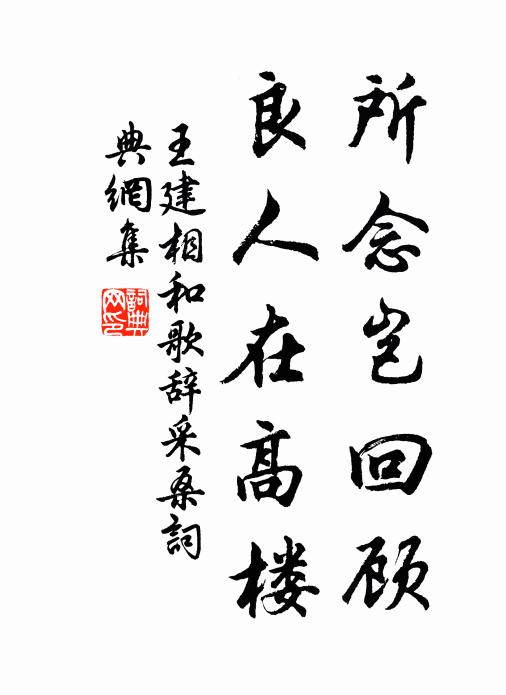 所念岂回顾
良人在高楼
王建相和歌辞采桑詞
典網集
詞典网印